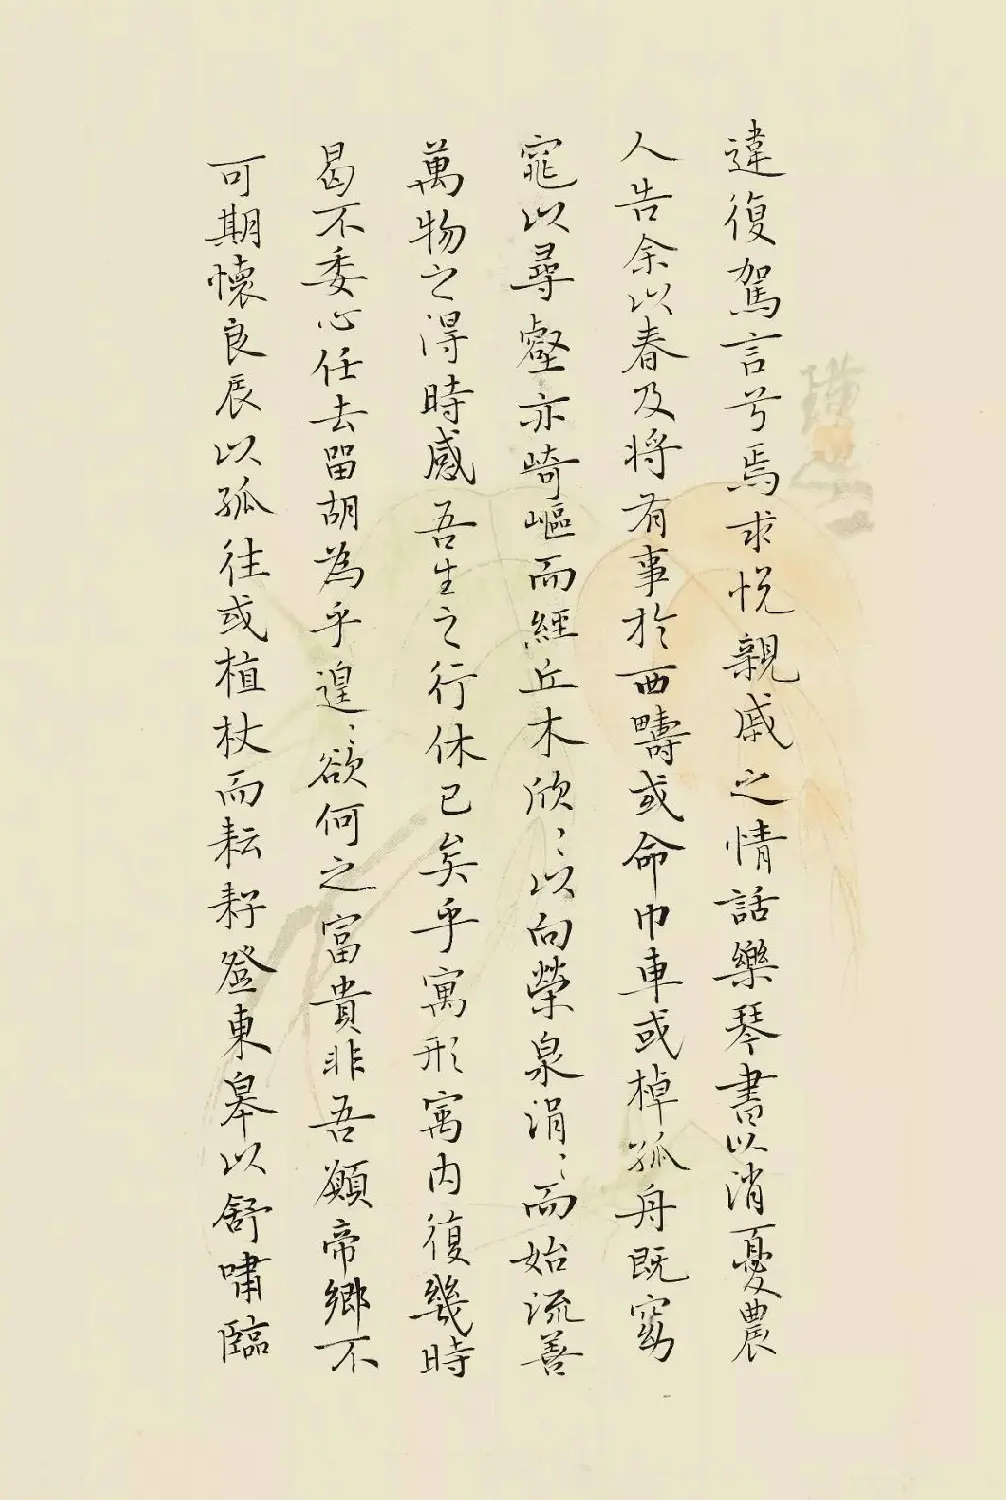 違復駕言兮焉求悅親戚之情話樂琴書以消憂農
人告余以春及將有事於西疇或命巾車或棹孤舟既窈
窕以尋壑亦崎嶇而經丘木欣〻以向榮泉涓〻而始流善
萬物之得時感吾生之行休已矣乎寓形寓內復幾時
曷不委心任去留胡為乎遑〻欲何之富貴非吾願帝鄉不
可期懷良辰以孤往或植杖而耘耔登東皋以舒嘯臨